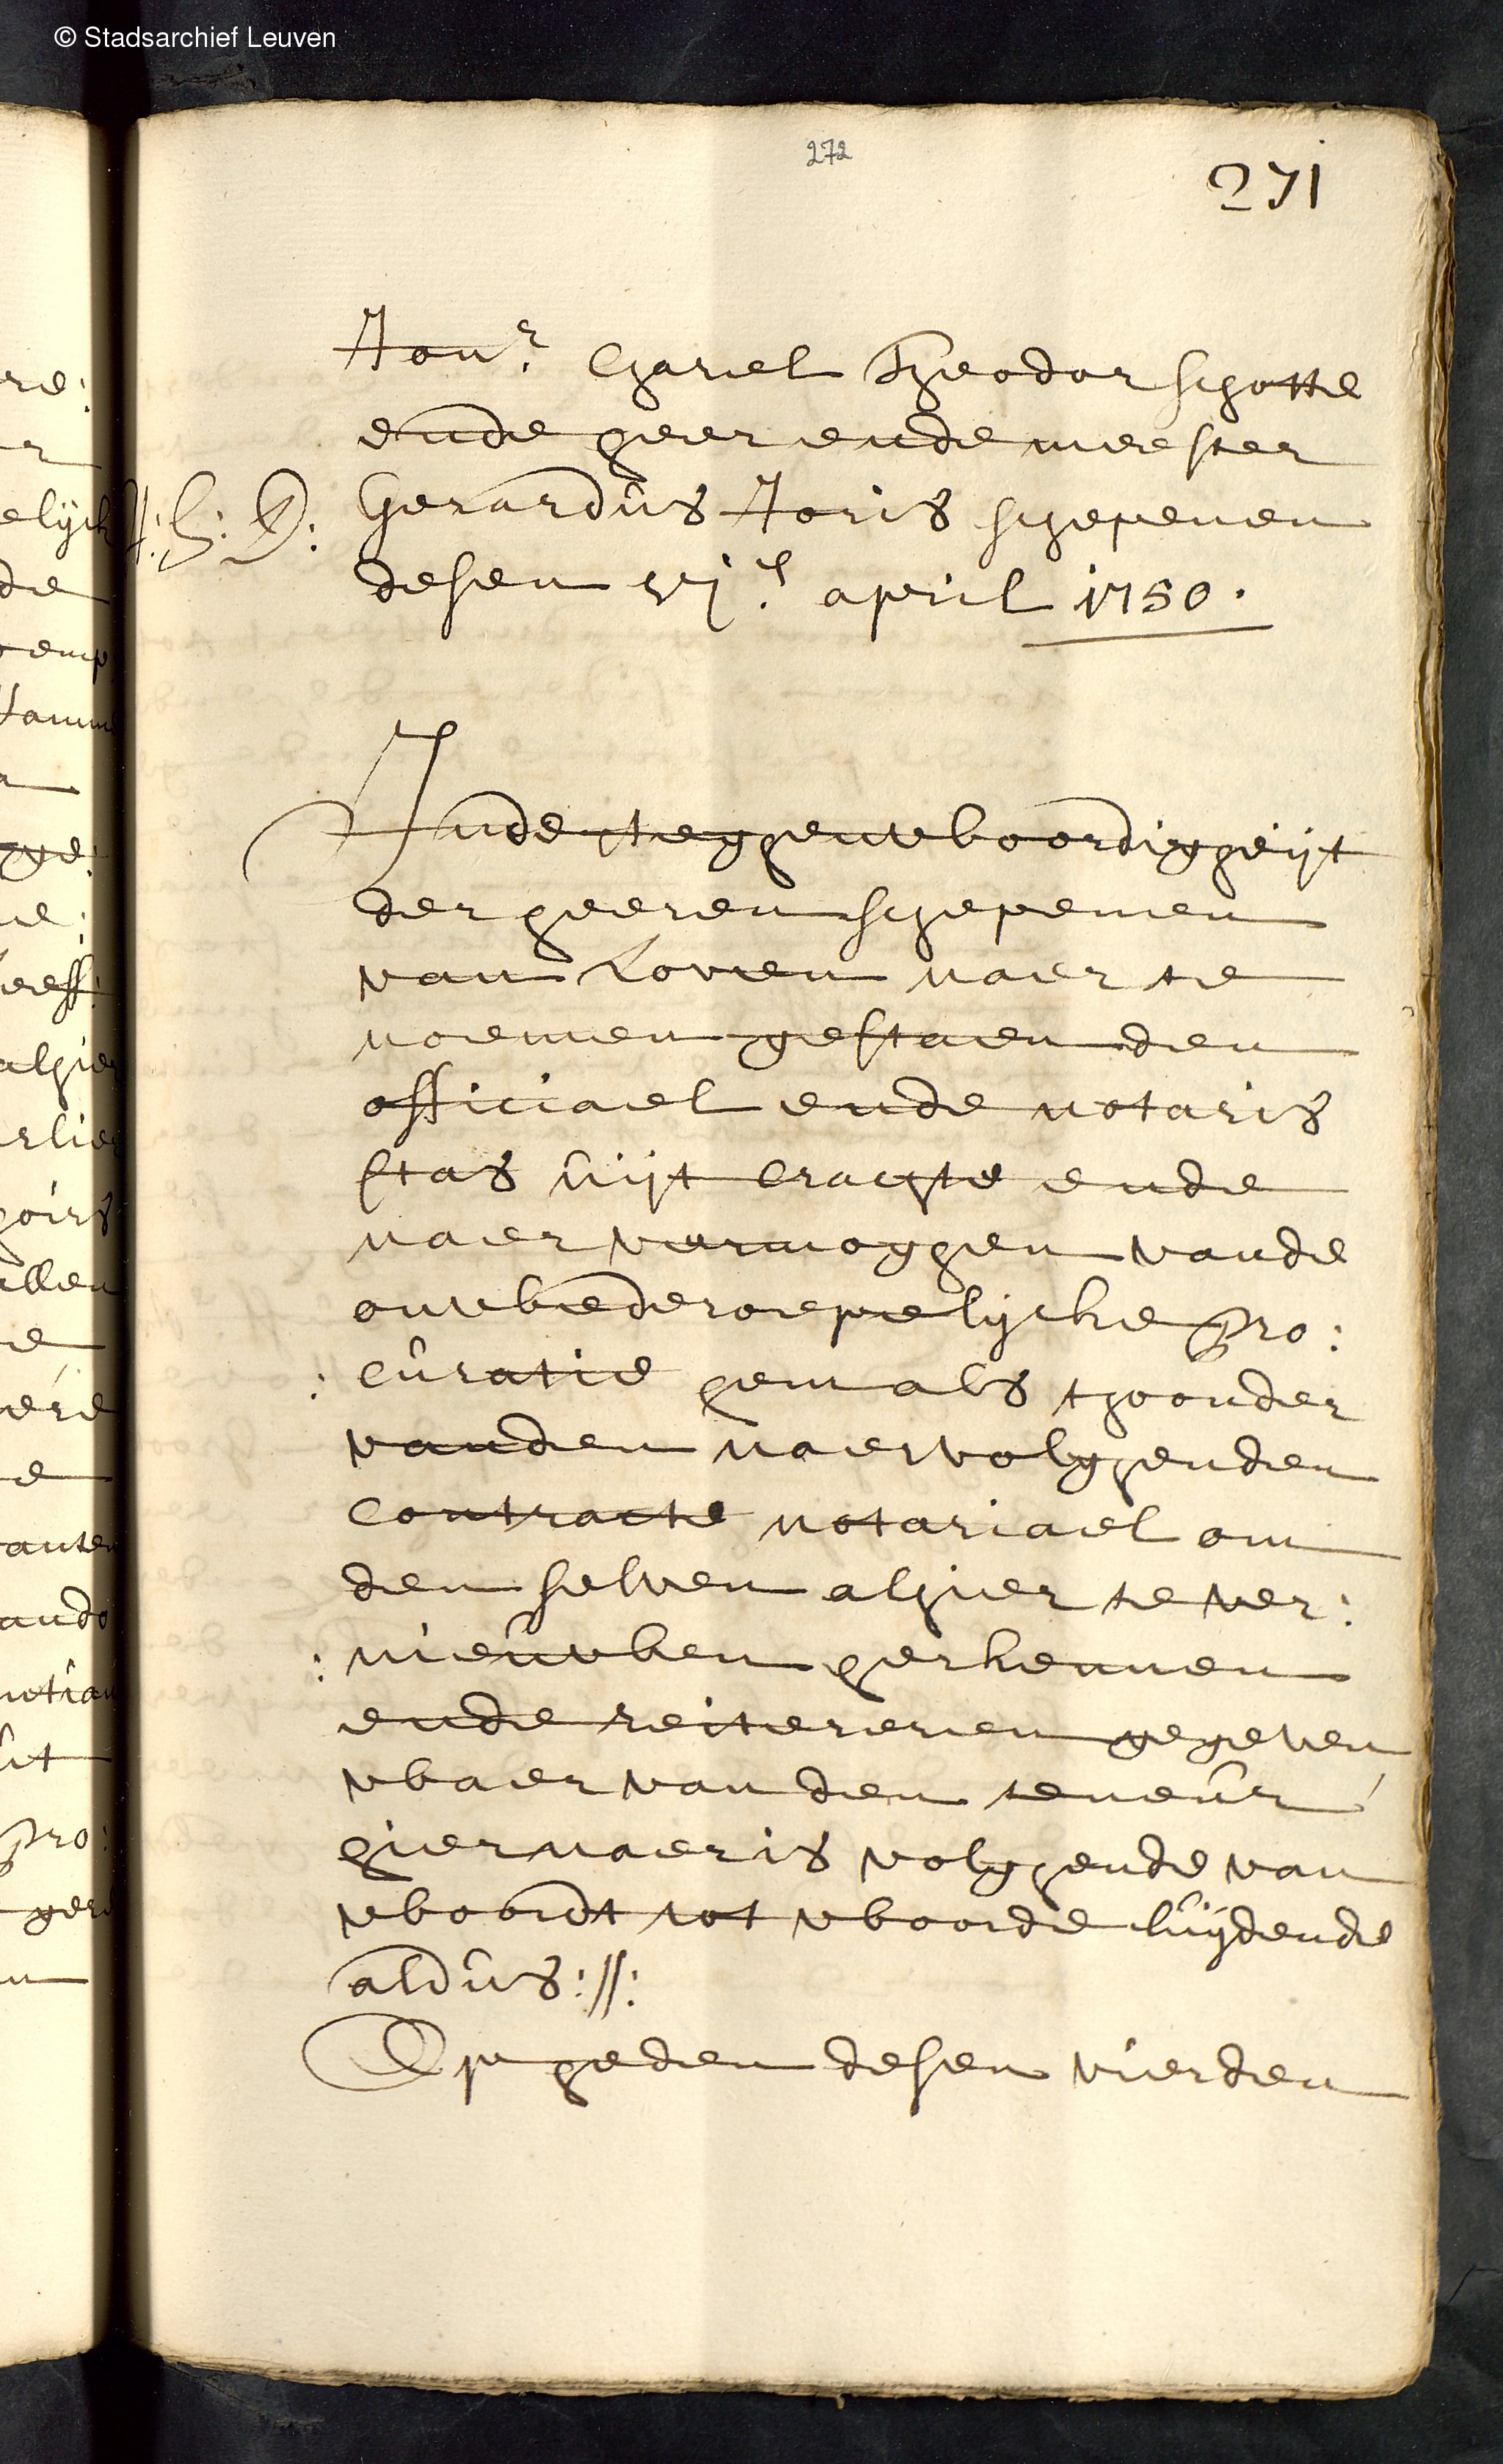 © Stadsarchief Leuven
272
271
Jonr. Charel Theodor Schotte
ende heer ende meester
Gerardus Joris schepenen
desen april 1750.
Inde teghenwoordigheijt
der heeren schepenen
van Loven naer te
noemen gestaen den
officiael ende notaris
Stas uijt crachte ende
naer vermoghen vande
onwederoepelijcke pro:
:curatie hem als thoonder
vanden naervolghenden
contracte notariael om
den selven alhier te ver:
:nieuwen herkennen
ende reitereren gegeven
waer van den teneur
hier naer is volghende van
woordt tot woorde luijdende
aldus://:
Op heden desen vierden